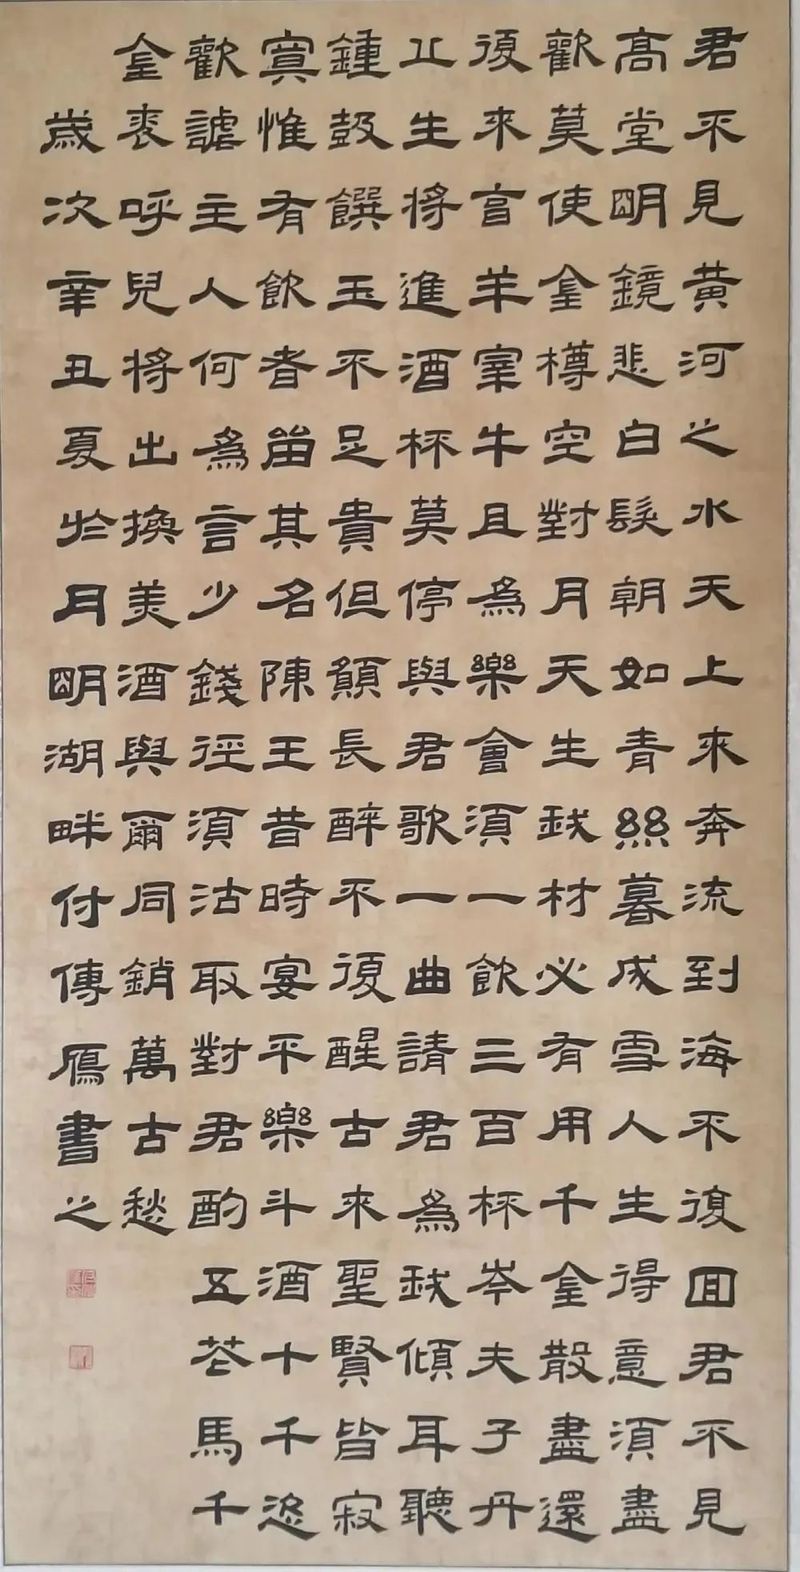 君不見黃河之水天上來奔流到海不復回君不見
高堂明鏡悲白髮朝如青絲暮成雪人生得意須盡
歡莫使金樽空對月天生我材必有用千金散盡還
復來亯羊宰牛且為樂會須一飲三百杯岑夫子丹
丘生將進酒杯莫停與君歌一曲請君為我傾耳聽
鍾鼓饌玉不足貴但願長醉不復醒古來聖賢皆寂
寞惟有飲者留其名陳王昔時宴平樂斗酒十千恣
歡謔主人何為言少錢徑須沽取對君酌五花馬千
金裘呼兒將出換美酒與爾同銷萬古愁
歲次辛丑夏於月明湖畔付傳雁書之